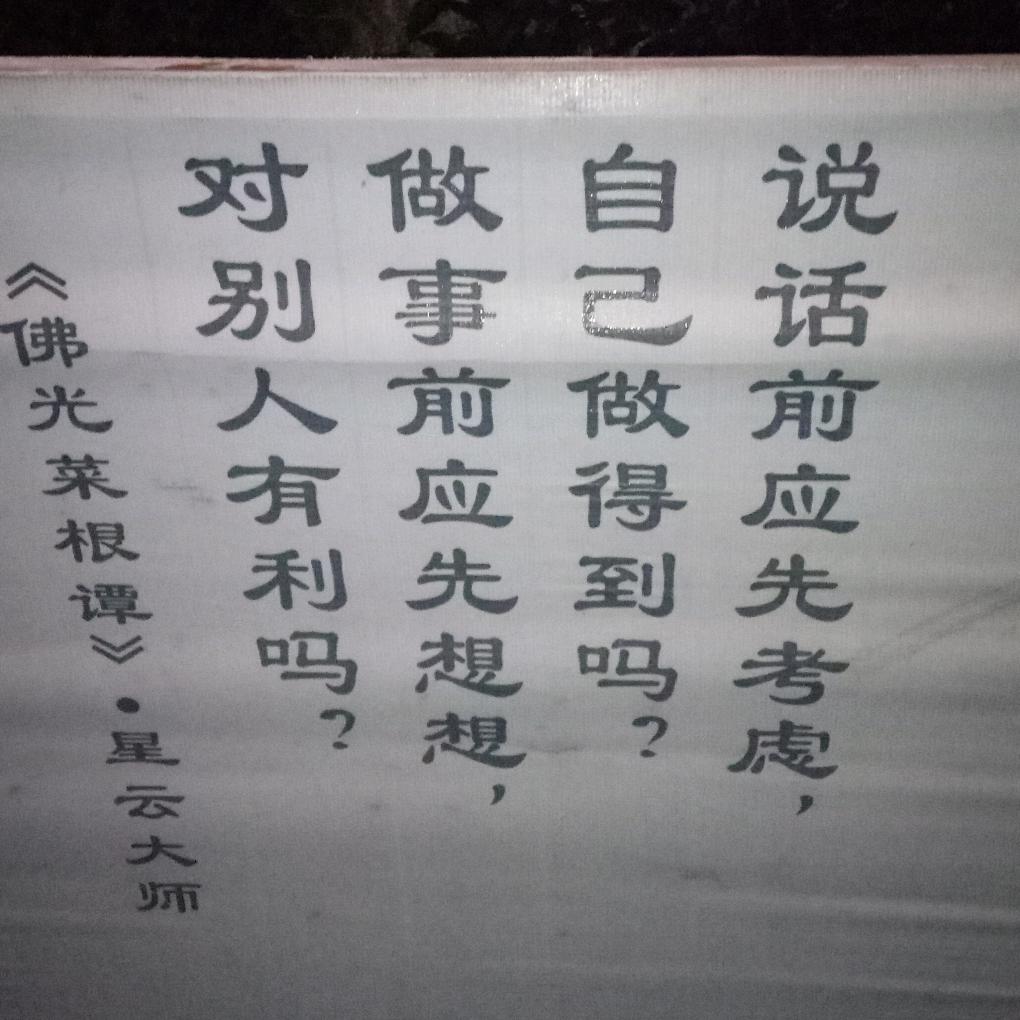 说话前应先考虑，
自己做得到吗？
做事前应先想想，
对别人有利吗？
《佛光菜根谭》•星云大师